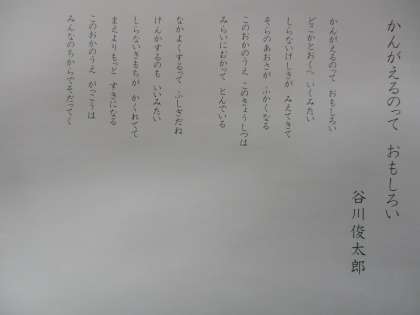 かんがえるのって おもしろい
谷川俊太郎
かんがえるのって おもしろい
どこかとおくへ いくみたい
しらないけしきが みえてきて
そらのあおさが ふかくなる
このおかのうえ このきょうしつは
みらいにむかって とんでいる
なかよくするって ふしぎだね
けんかするのも いいみたい
しらないきもちが かくれてて
まえよりもっと すきになる
このおかのうえ がっこうは
みんなのちからで そだってく